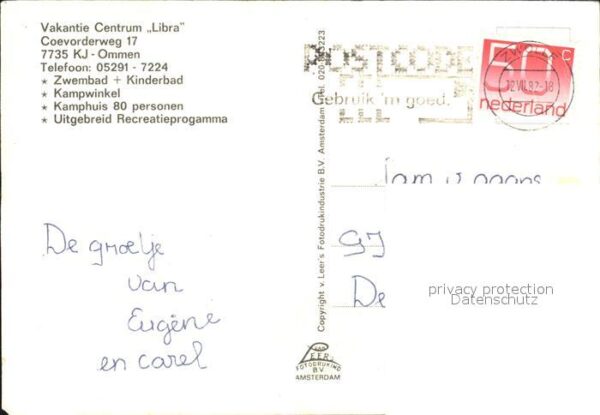 Vakantie Centrum „Libra"
Coevorderweg 17
7735 KJ - Ommen
Telefoon: 05291 - 7224
★ Zwembad + Kinderbad
★ Kampwinkel
★ Kamphuis 80 personen
★ Uitgebreid Recreatieprogamma
De groetje
van
Eugène
en carel
Copyright v. Leer's Fotodrukindustrie B.V. Amsterdam Tel. 020
POSTCODE
Gebruik 'm goed.
50 c
nederland
12.VII.82-18
Fam
GJ
De
privacy protection
Datenschutz
VAN
LEER'S
FOTODRUKIND
B.V.
AMSTERDAM